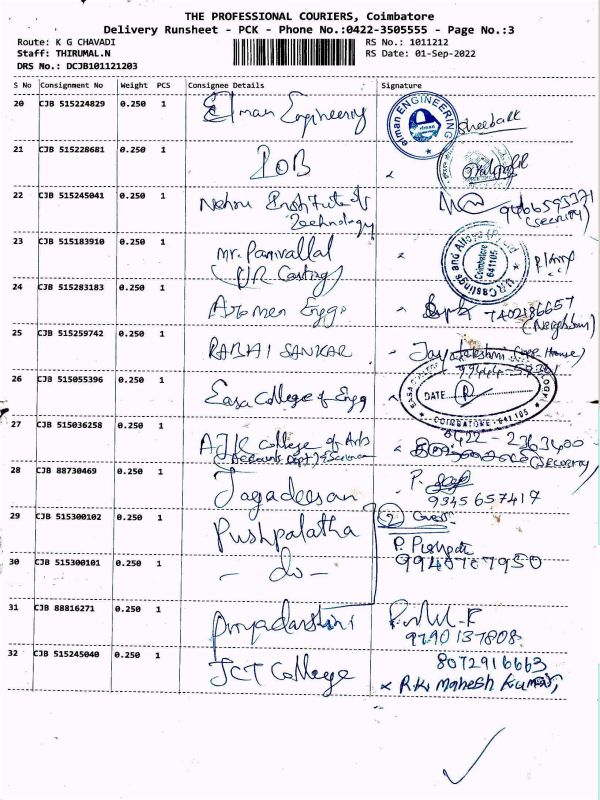 THE PROFESSIONAL COURIERS, Coimbatore
Delivery Runsheet - PCK - Phone No.:0422-3505555 - Page No.:3
Route: K G CHAVADI
RS No.: 1011212
Staff: THIRUMAL.N
RS Date: 01-Sep-2022
DRS No.: DCJB101121203
S No Consignment No Weight PCS Consignee Details Signature
20 CJB 515224829 0.250 1 Elman Engineering
elman ENGINEERING
21 CJB 515228681 0.250 1 IOB
22 CJB 515245041 0.250 1 Nehru Institute of
Technology
(Security)
23 CJB 515183910 0.250 1 Mr. Panivallal
(UR Casting)
U.R. Castings and Alloys (P) Ltd
Coimbatore
641105
24 CJB 515283183 0.250 1 Engg
7402186657
(Neighbour)
25 CJB 515259742 0.250 1 SANKAR
26 CJB 515055396 0.250 1 Easa College of Engg
DATE
COIMBATORE - 641 105
27 CJB 515036258 0.250 1 AJK College of Arts
(Accounts Dept) & Science
0422 - 2363400
(Security)
28 CJB 88730469 0.250 1 Jagadeesan P.
9345657417
29 CJB 515300102 0.250 1 Pushpalatha
30 CJB 515300101 0.250 1 - do -
9940767950
31 CJB 88816271 0.250 1 Priyadarshini
9790137808
32 CJB 515245040 0.250 1 JCT College
8072916663
x R.K. Mahesh Kumar,